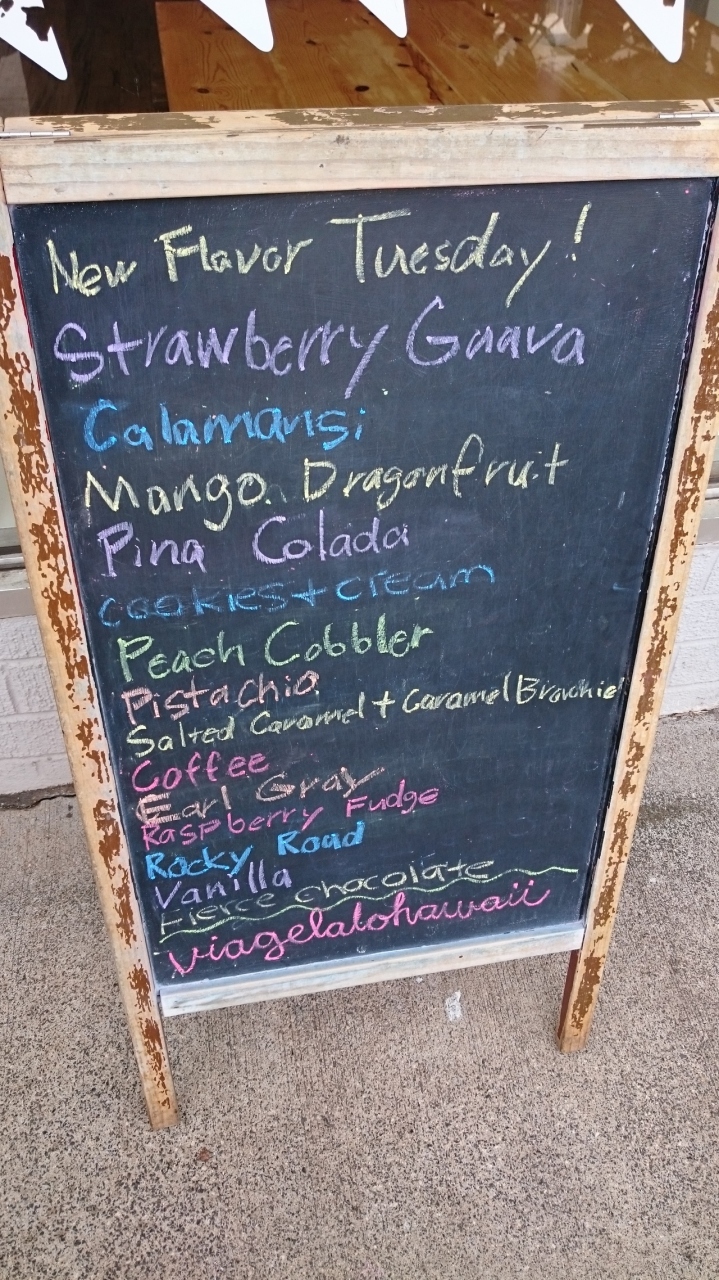 New Flavor Tuesday!
Strawberry Guava
Calamansi
Mango Dragonfruit
Pina Colada
cookies + cream
Peach Cobbler
Pistachio
Salted Caramel + Caramel Brownie
Coffee
Earl Gray
Raspberry Fudge
Rocky Road
Vanilla
Fierce chocolate
viagelatohawaii